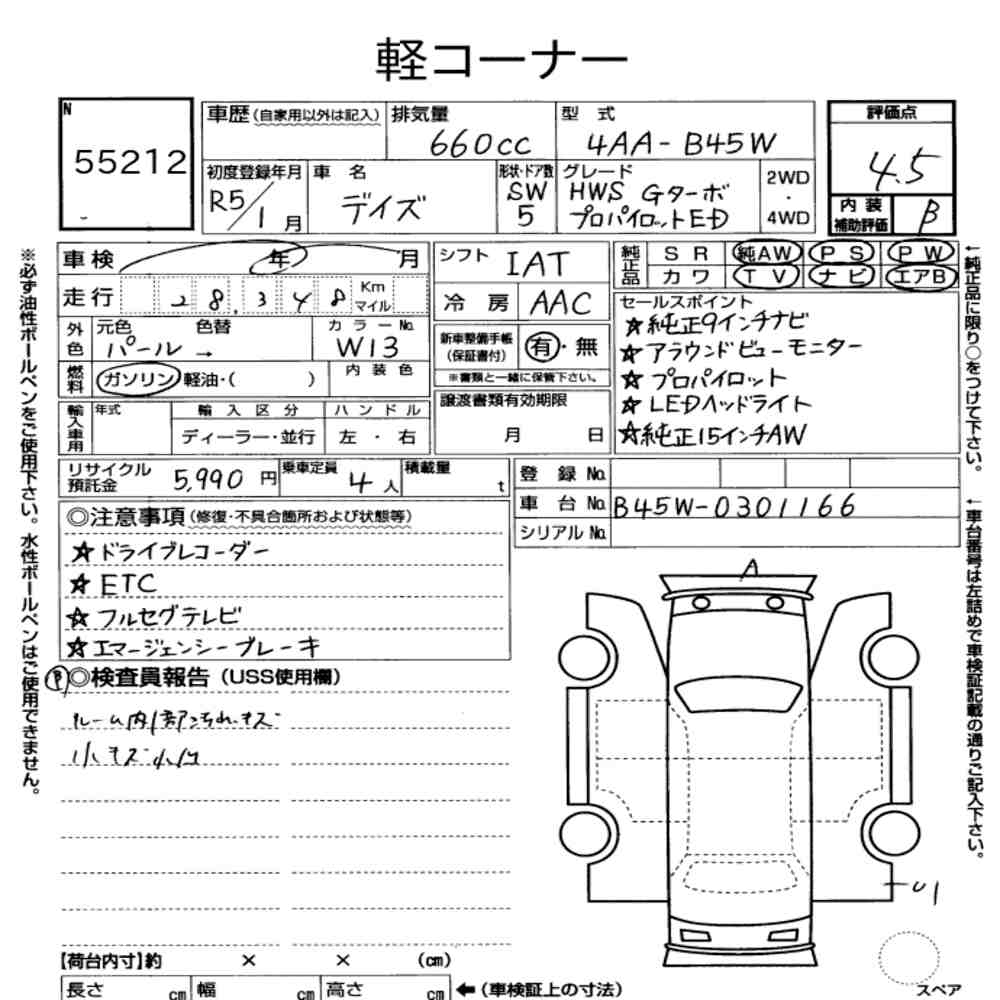 軽コーナー
N
55212
車歴(自家用以外は記入)
排気量
660cc
型式
4AA-B45W
評価点
4.5
初度登録年月
R5/1月
車名
デイズ
形状・ドア数
SW
5
グレード
HWS Gターボ
プロパイロットED
2WD
・
4WD
内装
補助評価
B
車検
年
月
シフト
IAT
純正品
SR
純AW
PS
PW
カワ
TV
ナビ
エアB
走行
28,348
Km
マイル
冷房
AAC
セールスポイント
☆純正9インチナビ
☆アラウンドビューモニター
☆プロパイロット
☆LEDヘッドライト
☆純正15インチAW
外色
元色
色替
パール→
カラーNo.
W13
新車整備手帳
(保証書付)
有・無
※書類と一緒に保管下さい。
燃料
ガソリン・軽油・( )
内装色
譲渡書類有効期限
月 日
輸入車用
年式
輸入区分
ハンドル
ディーラー・並行
左・右
リサイクル
預託金
5,990円
乗車定員
4人
積載量
t
登録No.
車台No.
B45W-0301166
シリアルNo.
◎注意事項(修復・不具合箇所および状態等)
☆ドライブレコーダー
☆ETC
☆フルセグテレビ
☆エマージェンシーブレーキ
◎検査員報告(USS使用欄)
ルーム内
小キズ
A
U1
【荷台内寸】約 × × (cm)
長さ cm
幅 cm
高さ cm
←(車検証上の寸法)
スペア
※必ず油性ボールペンをご使用下さい。水性ボールペンはご使用できません。
←純正品に限り○をつけて下さい。
←車台番号は左詰めで車検証記載の通りご記入下さい。